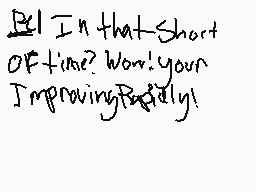 In that Short
OF time? Wow! your
Improving Rapidly!